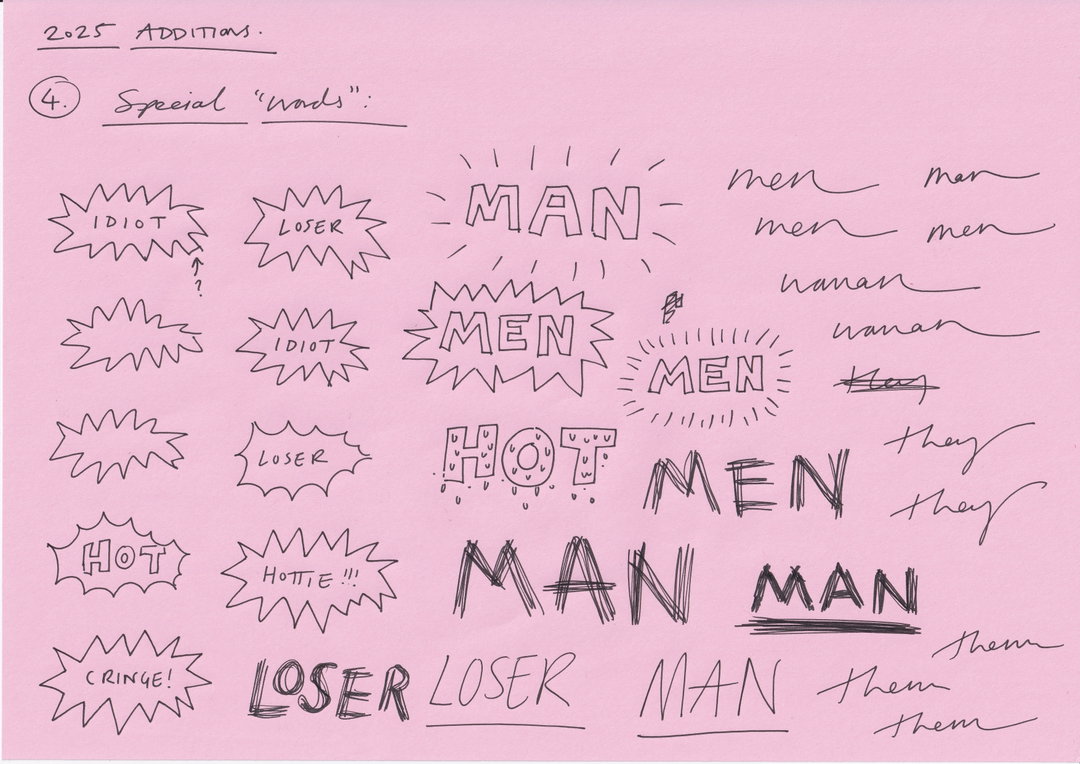 2025 ADDITIONS.
4. Special "words":
IDIOT
LOSER
MAN
men
man
?
men
men
MEN
IDIOT
woman
MEN
woman
they
LOSER
HOT
they
MEN
they
HOT
HOTTIE!!!
MAN
MAN
CRINGE!
LOSER
LOSER
MAN
them
them
them